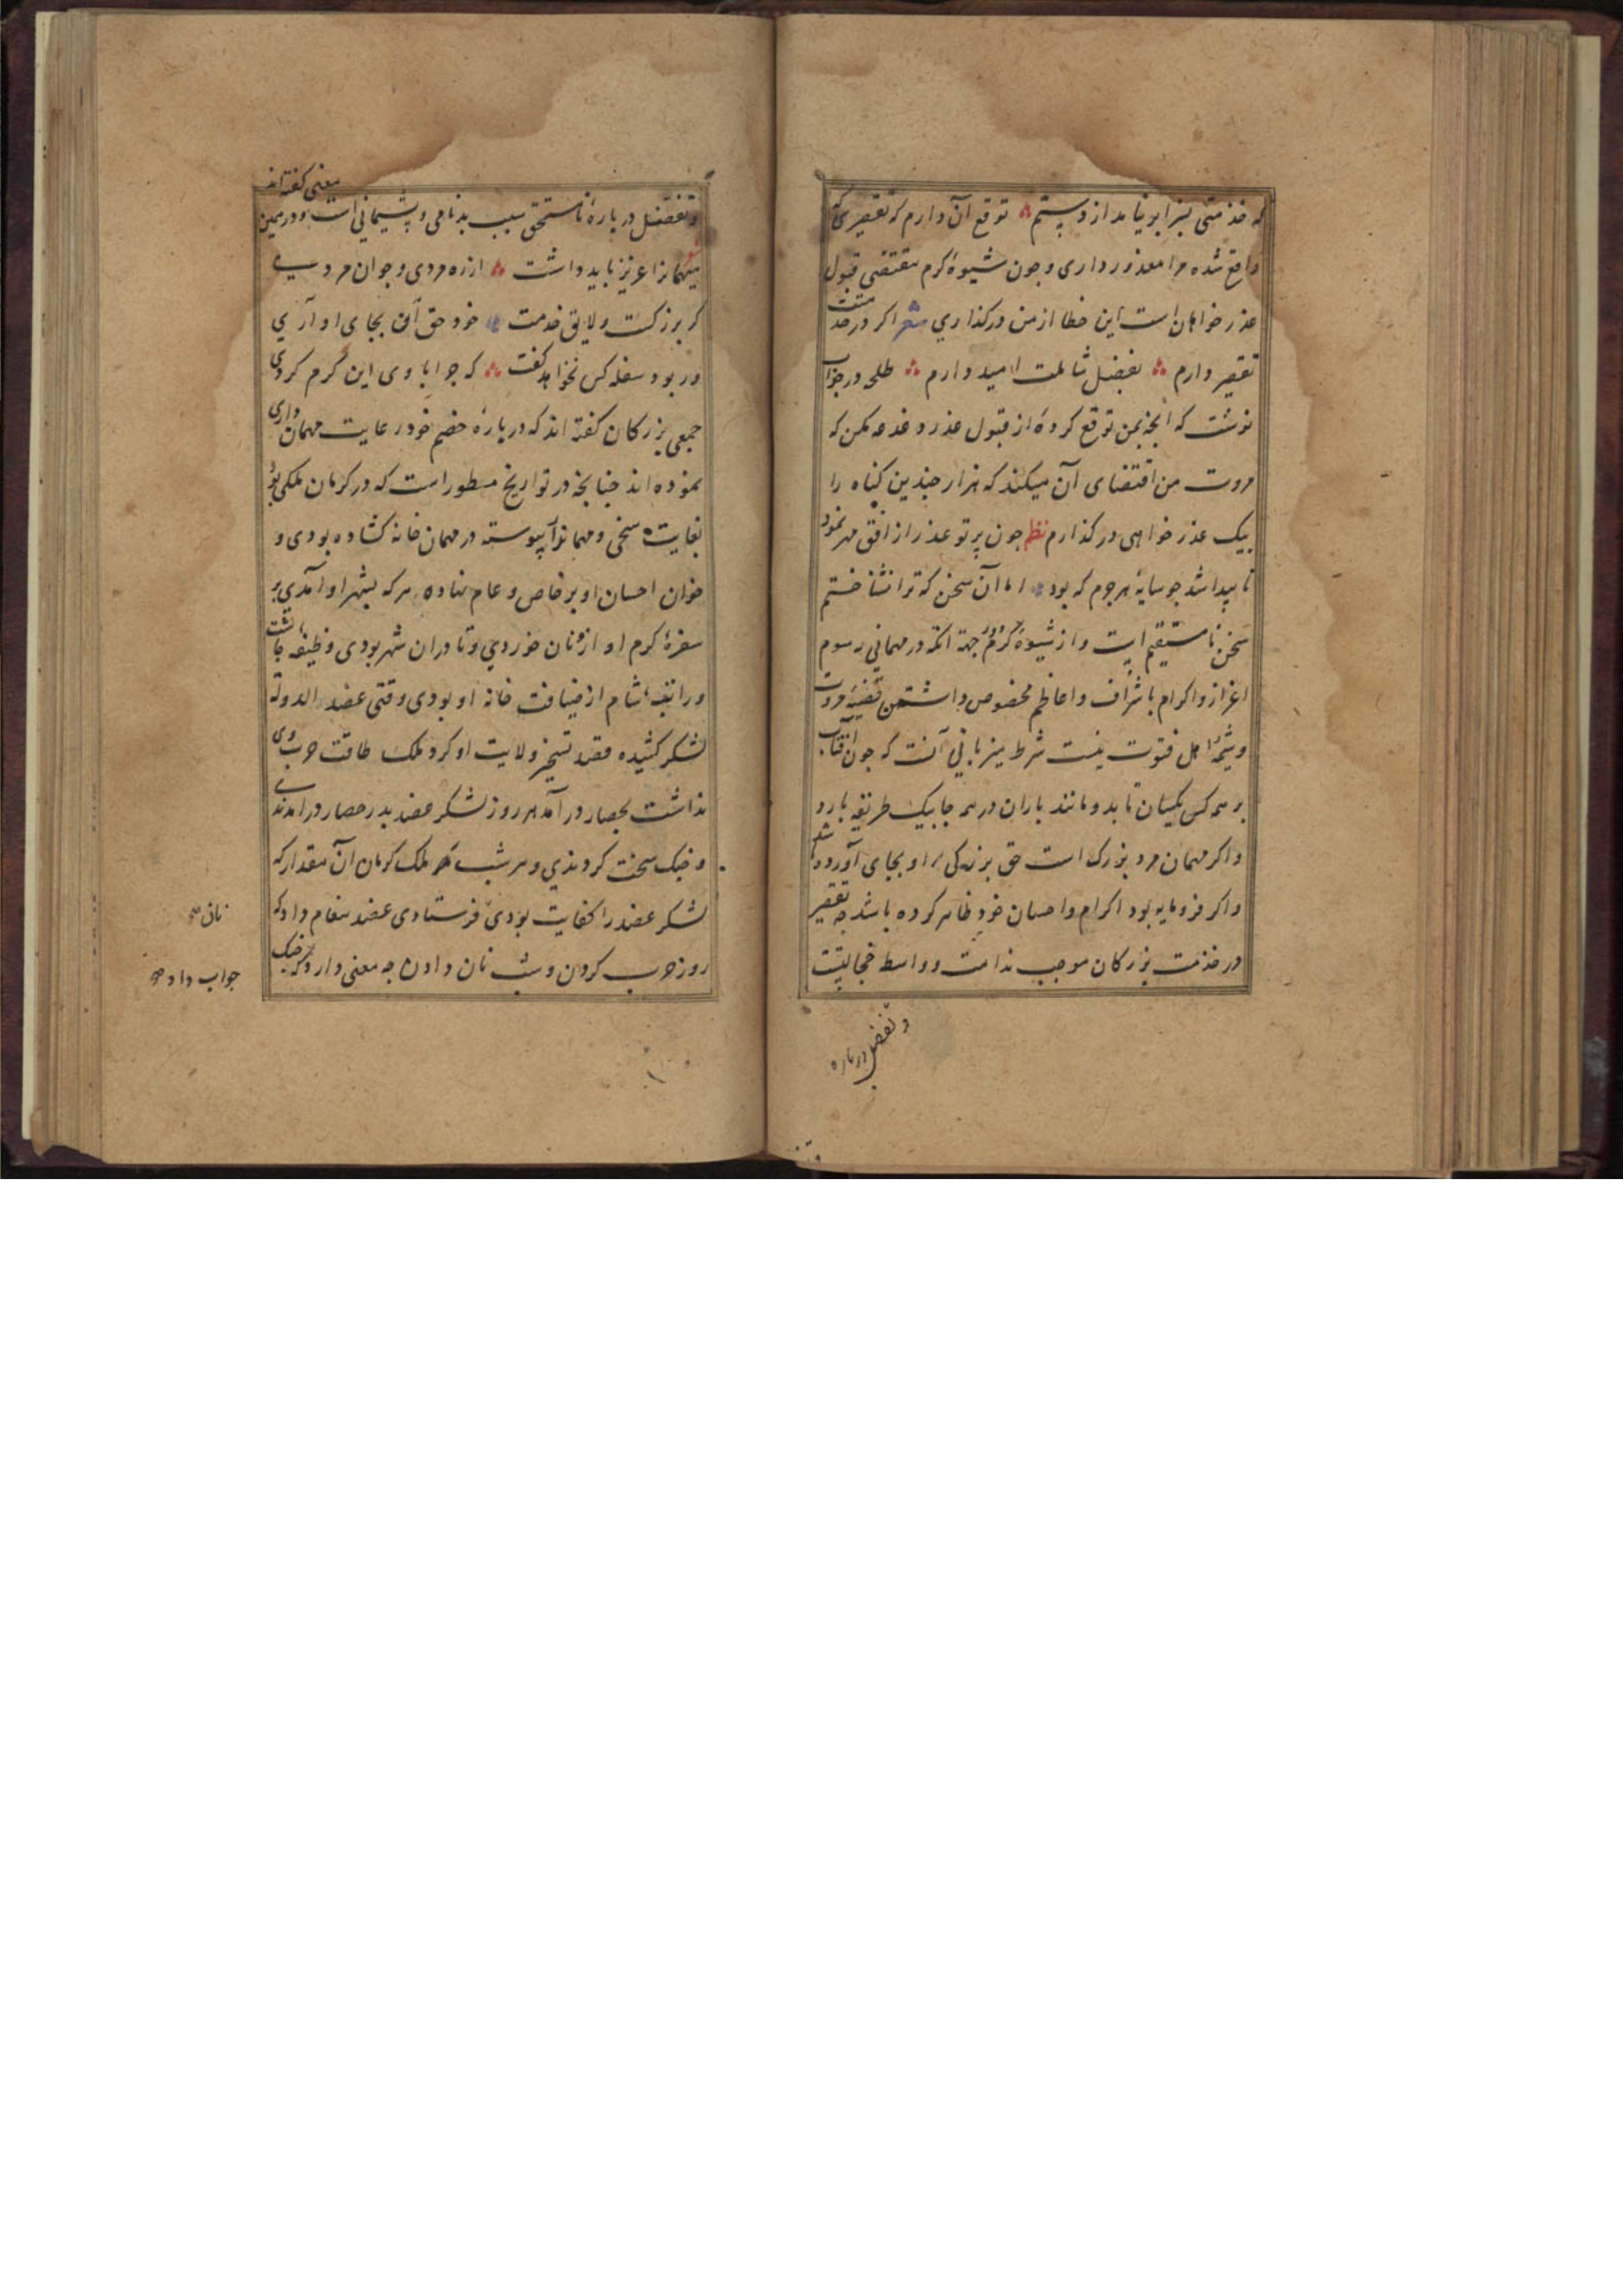 که خدمتی بسزا بر نیامد از دستم توقع آن دارم که تقصیری که
واقع شده مرا معذور داری و جون شیوهٔ کرم مقتضی قبول
عذر خواهان است این خطا از من درکذاری شعر اکر در خدمتت
تقصیر دارم بفضل شاملت امید دارم طلحه در جواب
نوشت که انجه بمن توقع کردهٔ از قبول عذر دغدغه مکن که
مروت من اقتضای آن میکند که هزار جندین کناه را
بیک عذر خواهی درکذارم نظم جون پرتو عذر از افق مهر نمود
نا پیدا شد جو سایه هر جرم که بود اما آن سخن که ترا نشناختم
سخن نا مستقیم است و از شیوهٔ کرم دور جهة آنکه در مهمانی رسوم
اعزاز و اکرام باشراف و اعاظم مخصوص داشتن قضیهٔ مروت
و شیمهٔ اهل فتوت نیست شرط میزبانی آنست که جون آفتاب
بر همه کس یکسان تابد و مانند باران در همه جا بیک طریقه بارد
و اکر مهمان مرد بزرک است حق بزرکی او بجای آورده شد
و اکر فرومایه بود اکرام و احسان خود ظاهر کرده باشد جه تقصیر
در خدمت بزرکان موجب ندامت و واسطه خجالتست
و تفضل درباره
و تفضل در بارهٔ نا مستحق سبب بدنامی و پشیمانی است و در همین معنی کفته اند
میهمانرا عزیز باید داشت از ره مردی و جوان مردی
کر بزرکست و لایق خدمت خود حق آن بجای او آری
ور بود سفله کس نخواهد کفت که جرا با وی این کرم کردی
جمعی بزرکان کفته اند که در بارهٔ خصم خود رعایت مهمان داری
نموده اند جنانجه در تواریخ مسطور است که در کرمان ملکی بود
بغایت سخی و مهمانواز پیوسته در مهمان خانه کشاده بودی و
خوان احسان او بر خاص و عام نهاده هر که بشهر او آمدی بر
سفرهٔ کرم او از نان خوردی و تا در ان شهر بودی وظیفه جاشت
و راتبهٔ شام از ضیافت خانه او بودی وقتی عضد الدوله
لشکر کشیده قصد تسخیر ولایت او کرد ملک طاقت حرب وی
نداشت بحصار درآمد هر روز لشکر عضد بدر حصار درامدندی
و جنک سخت کردندی و هر شب ملک کرمان آن مقدار که
لشکر عضد را کفایت بودی فرستادی عضد پیغام داد که
روز حرب کردن و شب نان دادن جه معنی دارد کفت جنک
نان
جواب داد